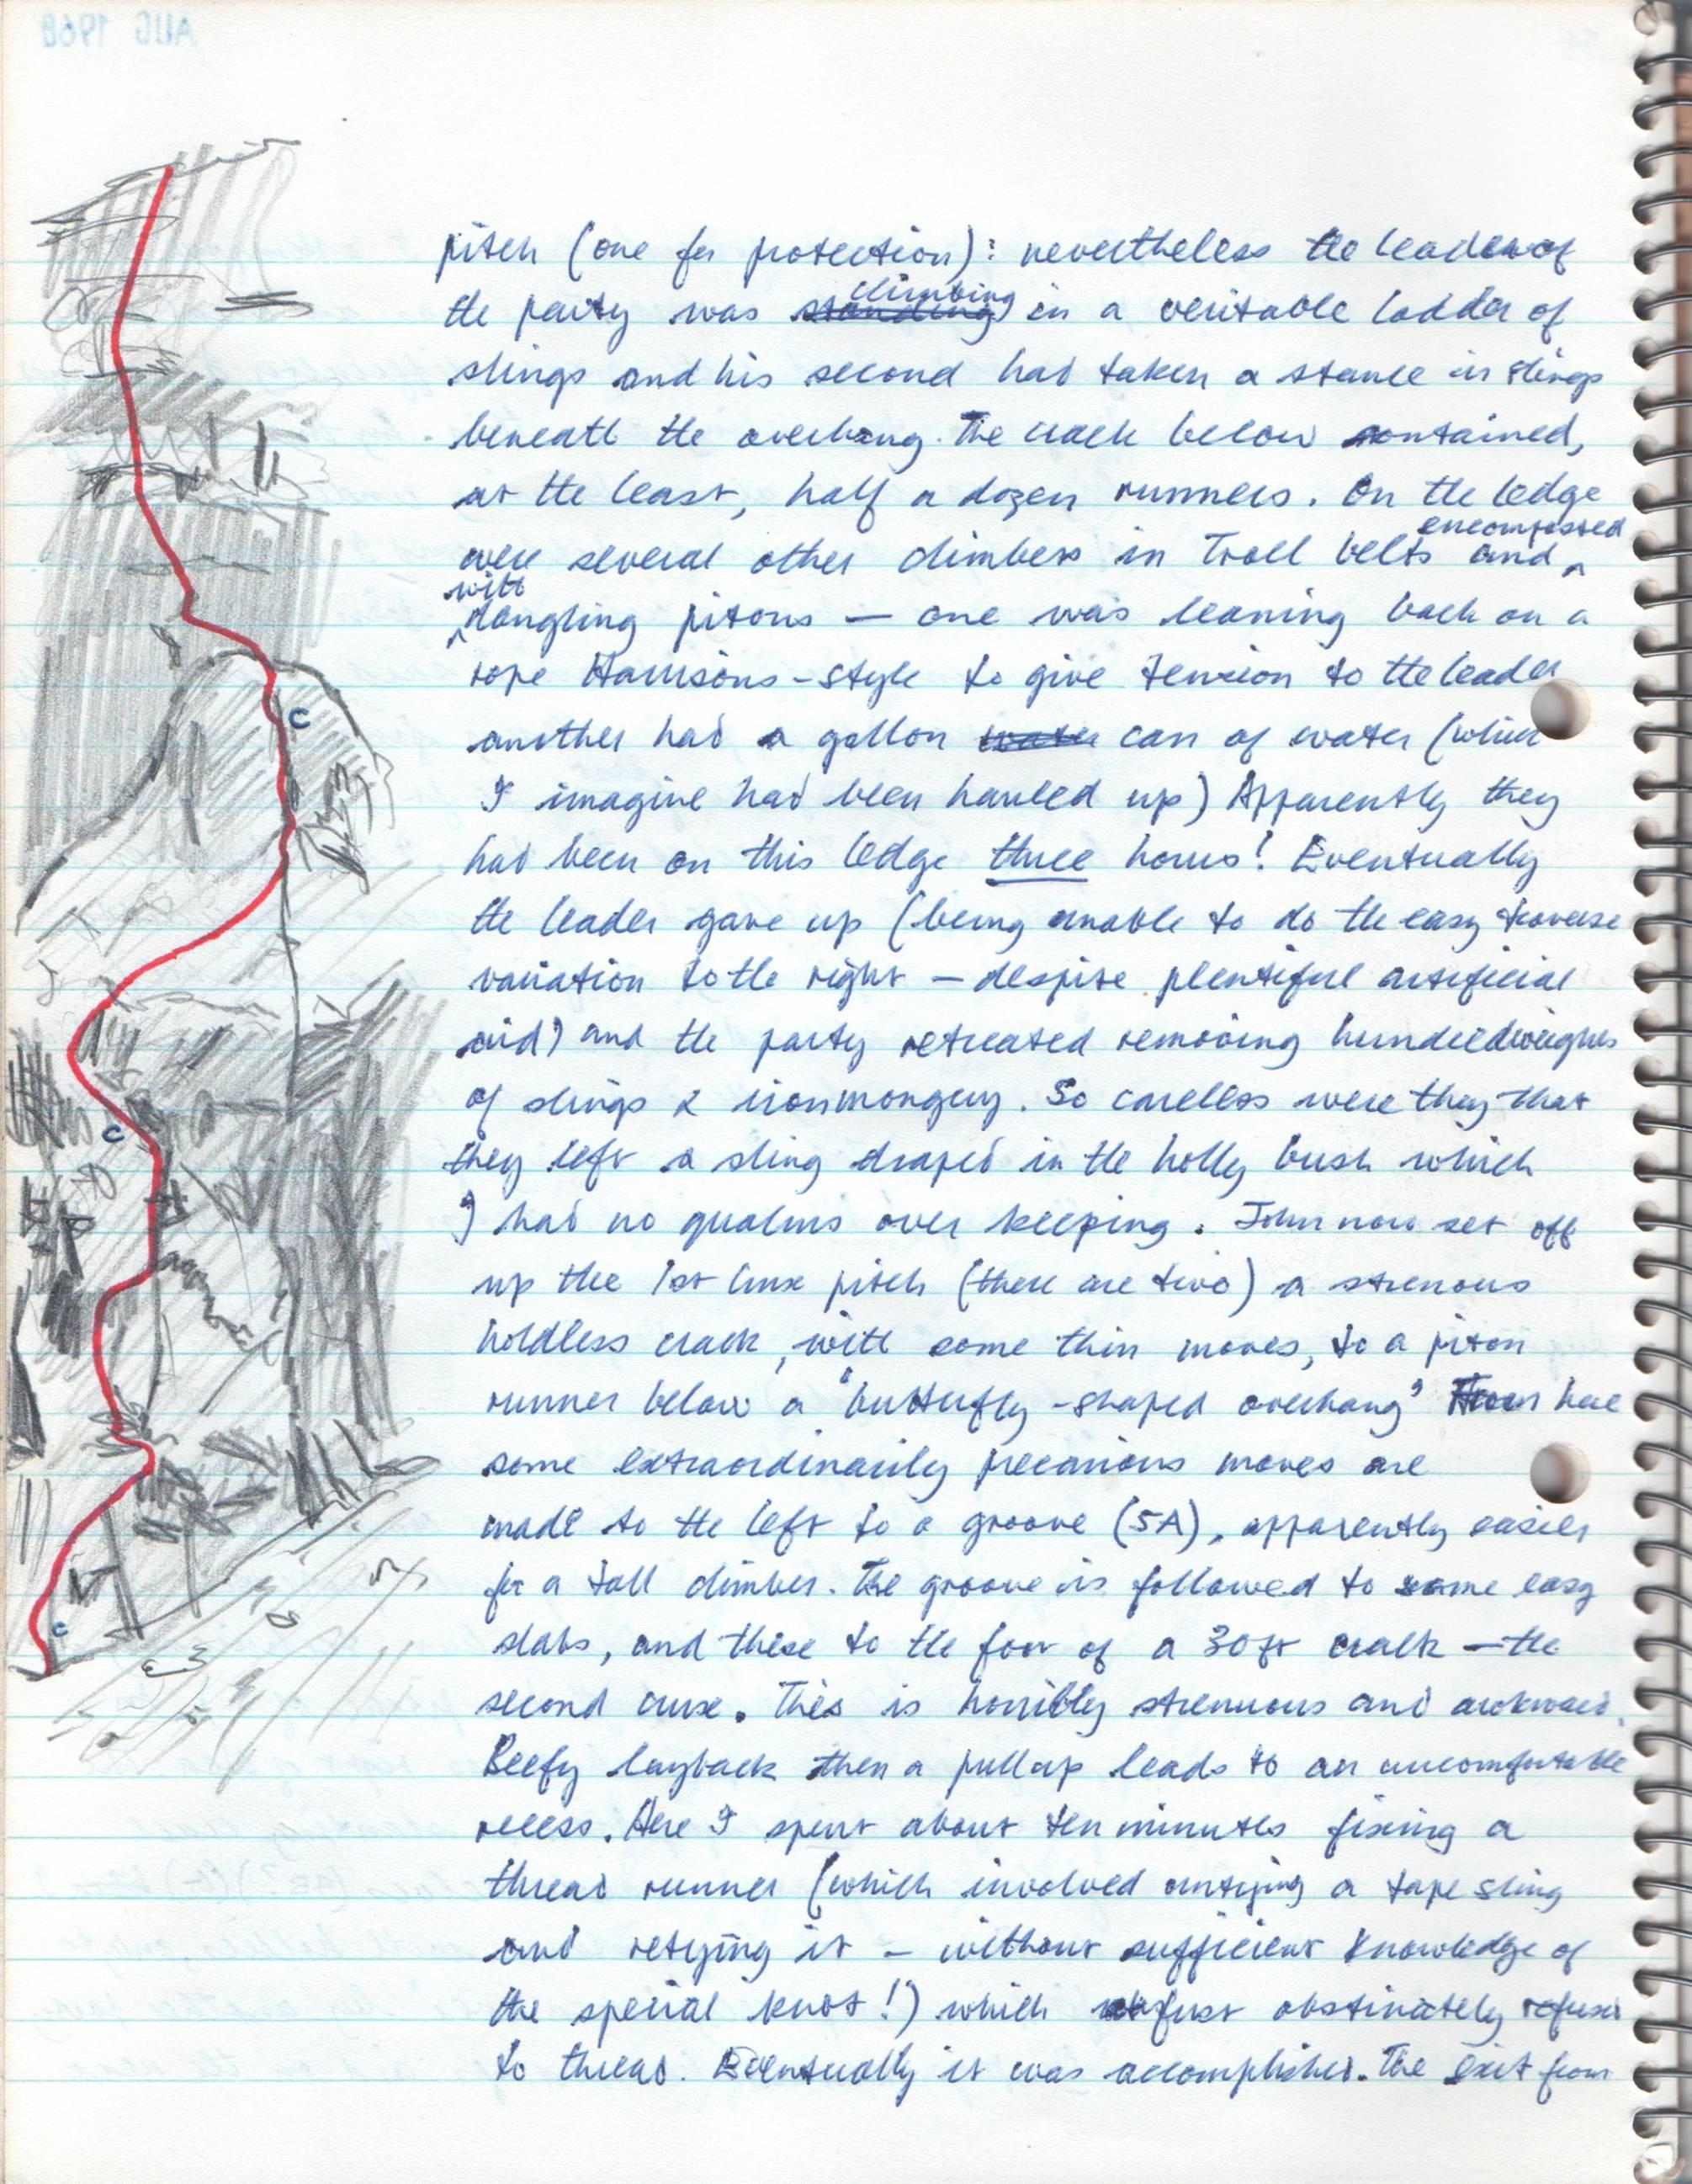 AUG 1968
pitch (one for protection): nevertheless the leader of
the party was standing climbing in a veritable ladder of
slings and his second had taken a stance in slings
beneath the overhang. The crack below contained,
at the least, half a dozen runners. On the ledge
were several other climbers in Troll belts and encompassed
with dangling pitons — one was leaning back on a
rope Harrisons-style to give tension to the leader
another had a gallon water can of water (which
I imagine had been hauled up) Apparently they
had been on this ledge three hours! Eventually
the leader gave up (being unable to do the easy traverse
variation to the right — despite plentiful artificial
aid) and the party retreated removing hundredweights
of slings & ironmongery. So careless were they that
they left a sling draped in the holly bush which
I had no qualms over keeping. John now set off
up the 1st crux pitch (there are two) a strenous
holdless crack, with some thin moves, to a piton
runner below a "butterfly-shaped overhang" From here
some extraordinarily precarious moves are
made to the left to a groove (5A), apparently easier
for a tall climber. The groove is followed to some easy
slabs, and these to the foot of a 30ft crack — the
second crux. This is horribly strenuous and awkward.
Beefy layback then a pullup leads to an uncomfortable
recess. Here I spent about ten minutes fixing a
thread runner (which involved untying a tape sling
and retying it — without sufficient knowledge of
the special knot!) which at first obstinately refused
to thread. Eventually it was accomplished. The exit from
C
C
C